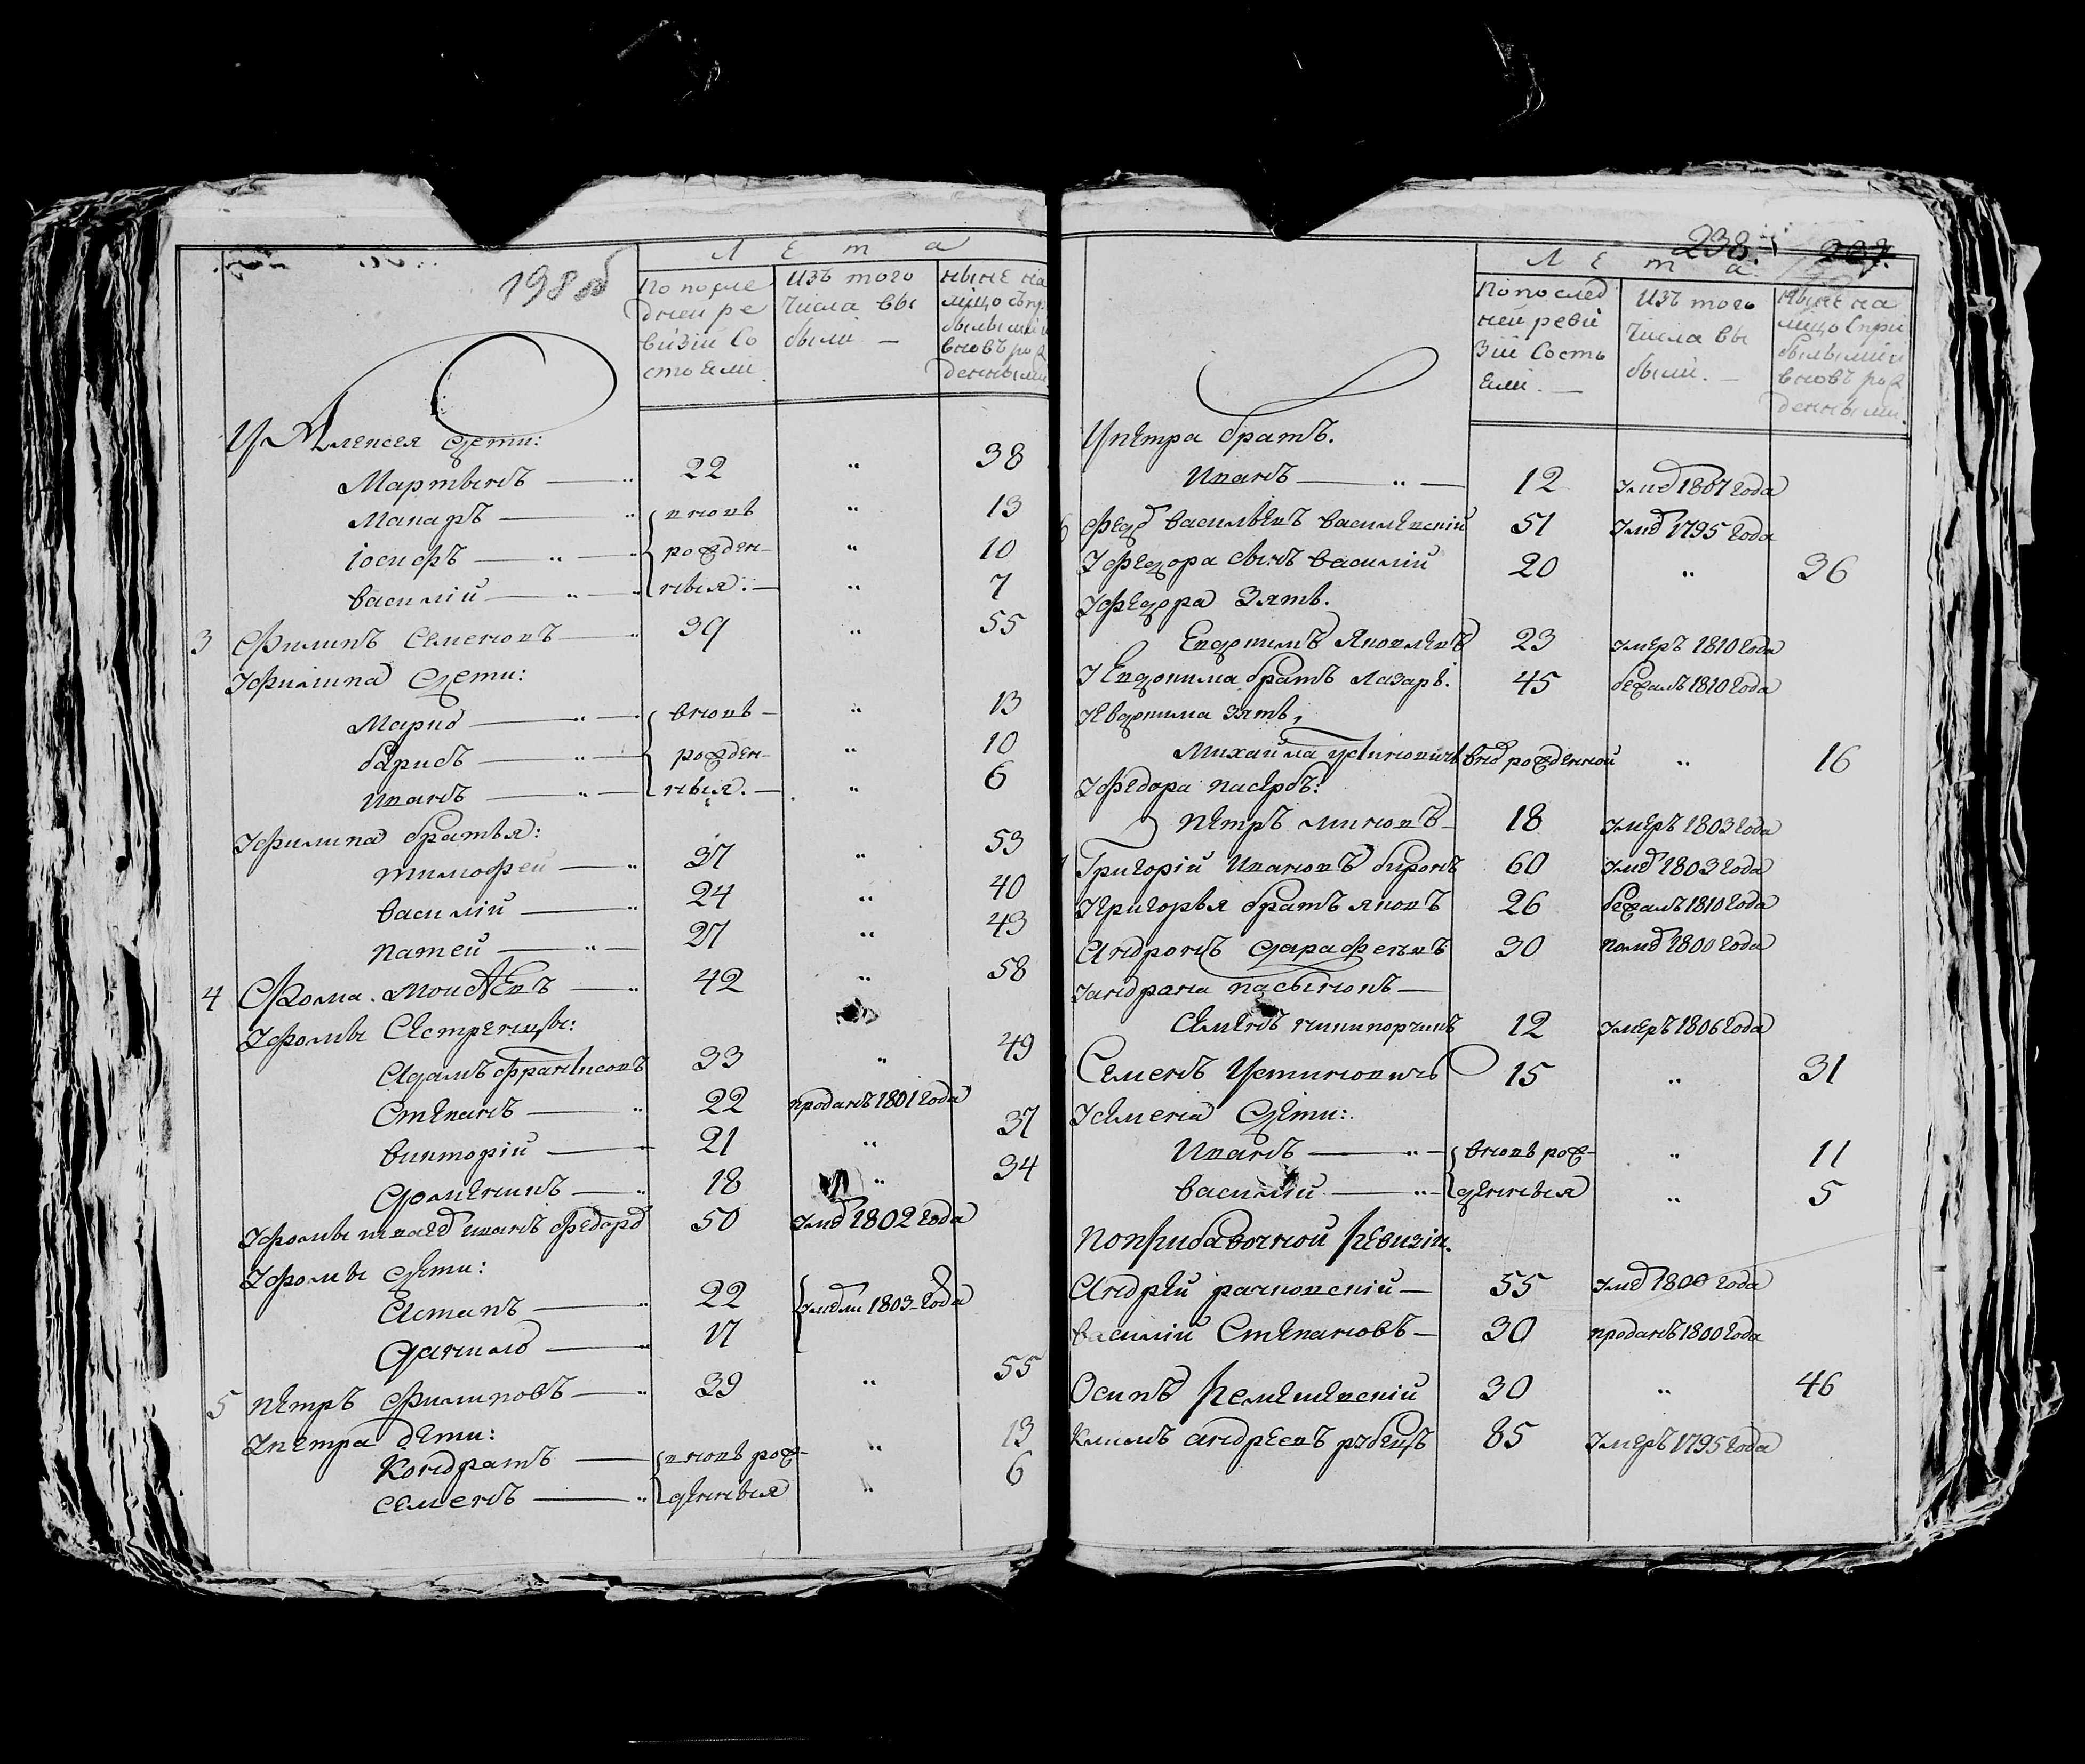 198 об
Лета
По после
дней ре
визіи со
стояли
Изъ того
числа вы
были —
ныне на
лицо съпр
былыми и
вновь рож
денными
У Алексея дети:
Мартынъ — 22 „ 38
Макаръ — вновь „ 13
іосифъ — „ — рожден- „ 10
василій — „ — ныя. — „ 7
3 Филипъ Семеновъ — 39 „ 55
Уфилипа дети:
Марко — „ — вновь — „ 13
барисъ — „ — рожден- „ 10
иванъ — „ — ныя. — „ 6
Уфилипа братья:
тимофей — 37 „ 53
василій — 24 „ 40
патей — „ — 27 „ 43
4 Фома. Моисеевъ — 42 „ 58
Уфомы Сестренцы:
Адамъ францисовъ 33 „ 49
Степанъ — 22 проданъ 1801 года
викторій — 21 „ 37
доменикъ — 18 „ 34
Уфомы иванъ федоро 50 умр 1802 года
Уфомы дети:
Астапъ — 22 умрли 1803 года
данило — 17
5 петръ филиповъ — 39 „ 55
Упетра дети:
Кондратъ — вновь рож- „ 13
семенъ — „ денныя „ 6
238. 237.
Лета
По послед
ней реви
зіи Состо
яли. —
Изъ того
числа вы
были. —
Ныне на
лицо спри
былыми и
вновь рож
денными.
Упетра братъ.
иванъ — „ — 12 умр 1807 года
6 Федр васильевъ василевскій 51 умр 1795 года
Уфедора сынъ василій 20 „ 36
Уфедора Зять.
Евдокимъ Яковлевъ 23 умеръ 1810 года
У Евдокима братъ Лазарь. 45 бежалъ 1810 года
Уевдокима зять,
михайла устиновичь внв рожденной „ 16
Уфедора пасербъ:
петръ миновъ — 18 умеръ 1803 года
Григорій ивановъ 60 умр 1803 года
Угригорья братъ яковъ 26 бежалъ 1810 года
Андронъ 30 1800 года
Уандрона пасынокъ —
семенъ 12 умеръ 1806 года
Семенъ Устиновичъ 15 „ 31
Усемена дети:
иванъ — „ — вновь рож- „ 11
василій — „ — денныя „ 5
поприбавочной ревизіи.
Андрей рачковскій — 55 умр 1800 года
василій Степановъ — 30 проданъ 1800 года
Осипъ 30 „ 46
климъ андреевъ 85 умеръ 1795 года